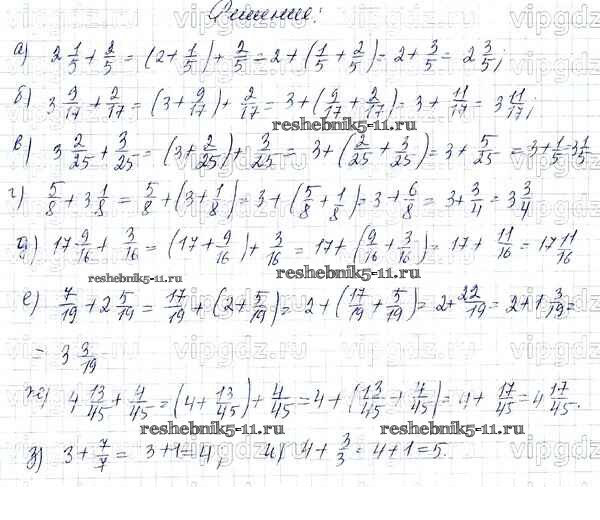 Решение:
а) 2 1/5 + 2/5 = (2 + 1/5) + 2/5 = 2 + (1/5 + 2/5) = 2 + 3/5 = 2 3/5;
б) 3 9/17 + 2/17 = (3 + 9/17) + 2/17 = 3 + (9/17 + 2/17) = 3 + 11/17 = 3 11/17;
reshebnik5-11.ru
в) 3 2/25 + 3/25 = (3 + 2/25) + 3/25 = 3 + (2/25 + 3/25) = 3 + 5/25 = 3 + 1/5 = 3 1/5
г) 5/8 + 3 1/8 = 5/8 + (3 + 1/8) = 3 + (5/8 + 1/8) = 3 + 6/8 = 3 + 3/4 = 3 3/4
д) 17 9/16 + 3/16 = (17 + 9/16) + 3/16 = 17 + (9/16 + 3/16) = 17 + 11/16 = 17 11/16
reshebnik5-11.ru reshebnik5-11.ru
е) 7/19 + 2 5/19 = 17/19 + (2 + 5/19) = 2 + (17/19 + 5/19) = 2 + 22/19 = 2 + 1 3/19 =
= 3 3/19
ж) 4 13/45 + 4/45 = (4 + 13/45) + 4/45 = 4 + (13/45 + 4/45) = 4 + 17/45 = 4 17/45.
reshebnik5-11.ru
з) 3 + 7/7 = 3 + 1 = 4, и) 4 + 3/3 = 4 + 1 = 5.